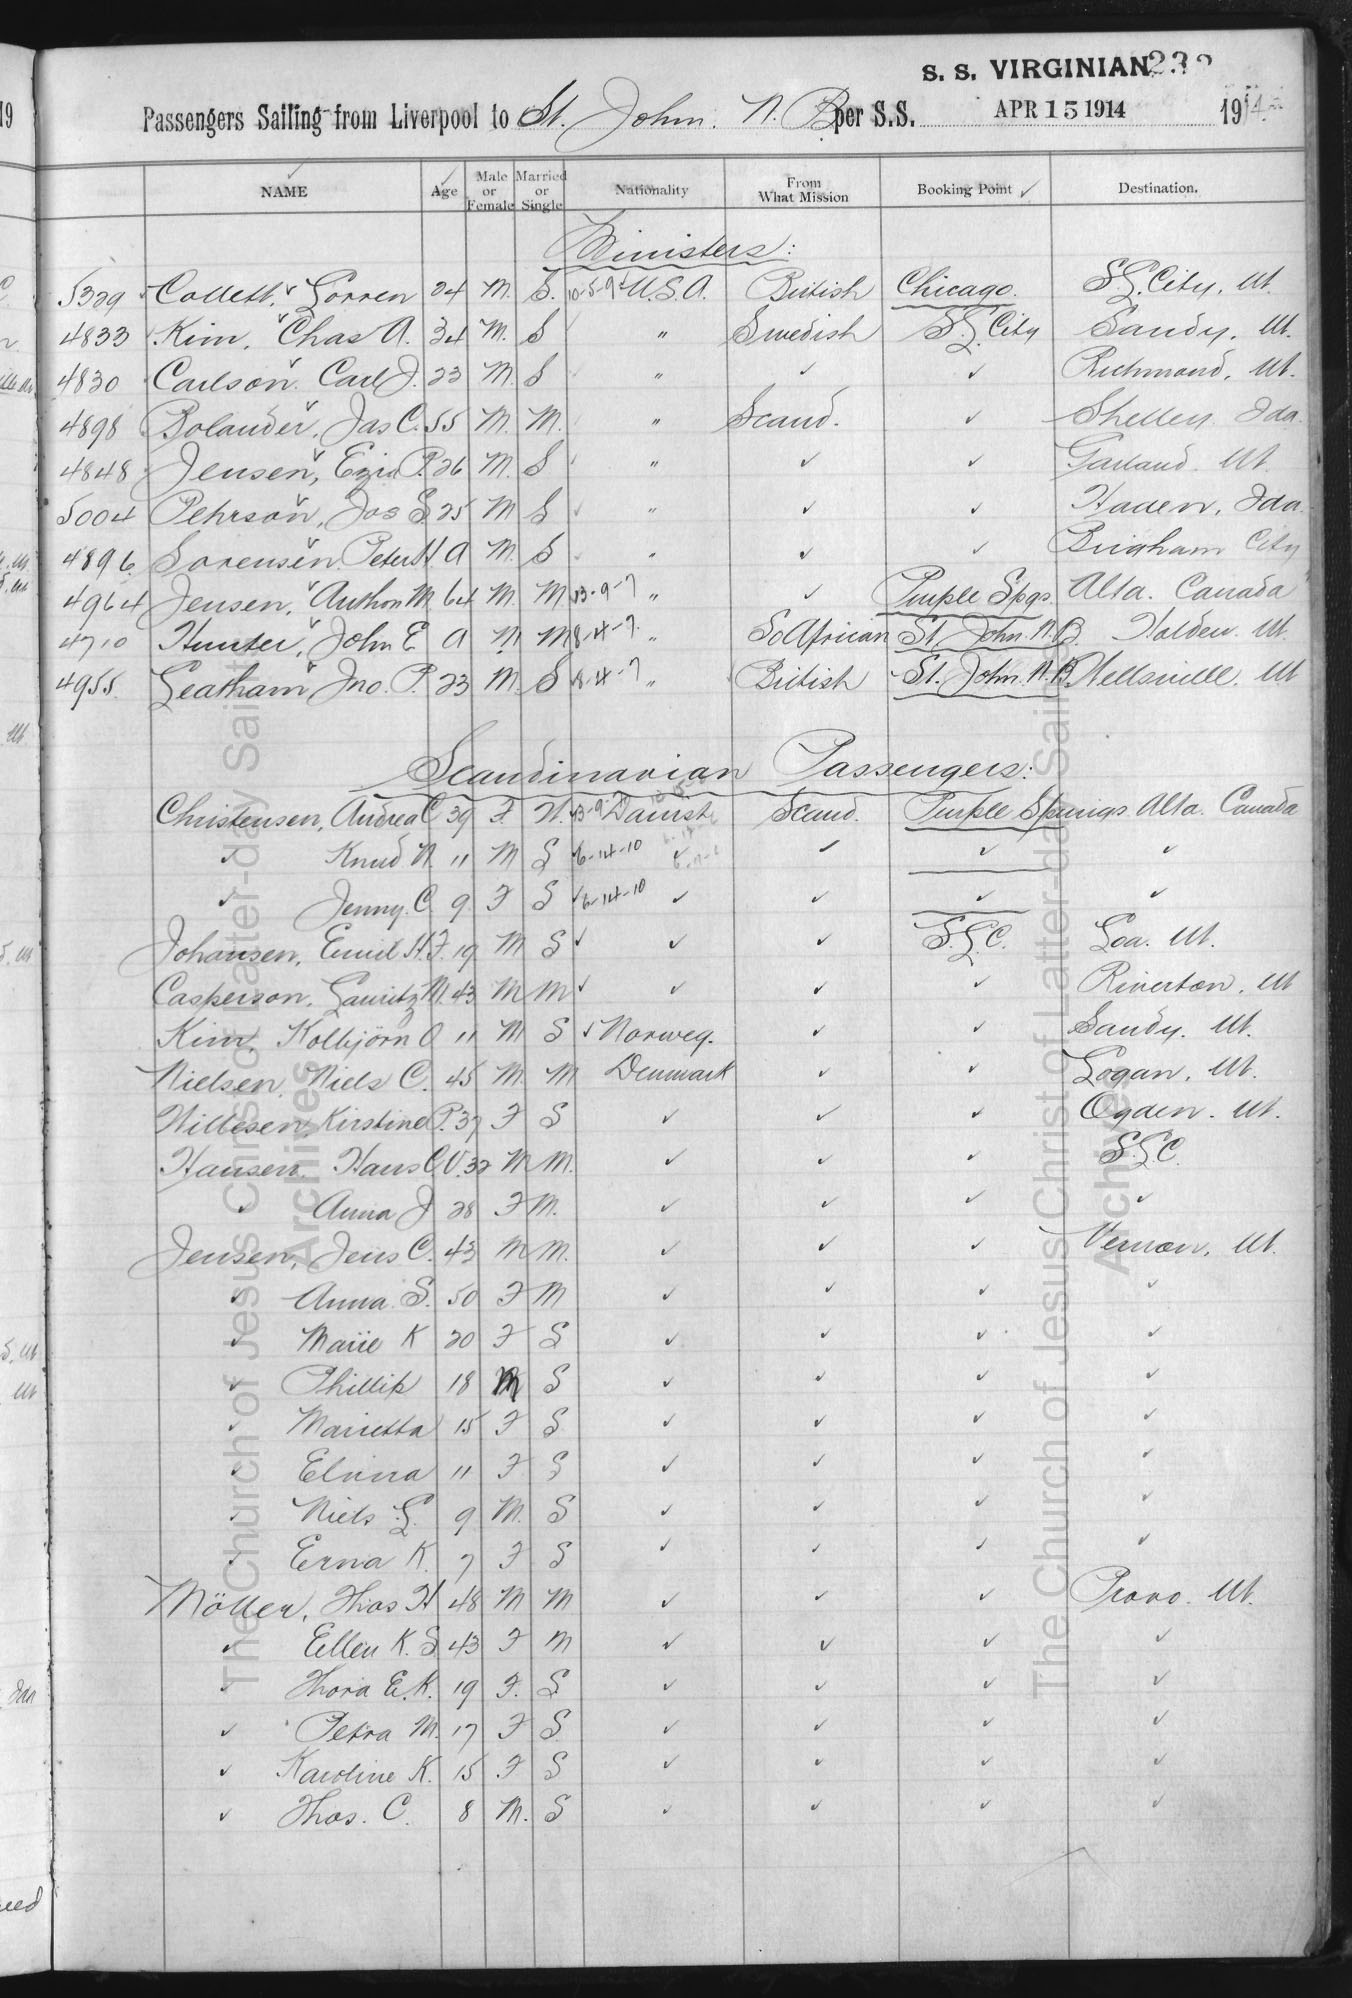 S. S. VIRGINIAN 232
Passengers Sailing from Liverpool to St. John. N. B. per S.S. APR 15 1914 1914
NAME Age Male or Female Married or Single Nationality From What Mission Booking Point ✓ Destination.
Ministers:
5329 Collett, Lorren 24 M. S. U.S.A. British Chicago. S.L. City. Ut.
4833 Kim, Chas A. 34 M. S " Swedish S.L. City Sandy, Ut.
4830 Carlson, Carl J. 23 M. S " ✓ ✓ Richmond, Ut.
4898 Bolander, Jas C. 55 M. M. " Scand. ✓ Shelley Ida.
4848 Jensen, Ezra P. 26 M. S " ✓ ✓ Garland. Ut.
5004 Pehrson, Jos S. 25 M S " ✓ ✓ Haden, Ida.
4896 Sorensen, Peter H. A M. S " ✓ ✓ Brigham City
4964 Jensen, Anthon M 64 M. M 13-9-7 " ✓ Purple Spgs. Alta. Canada
4710 Hunter, John E A M. M 8-4-7. " So African St. John. N.B Holden. Ut.
4955 Leatham Jno. P. 23 M. S 8-4-7 " British St. John. N.B. Wellsville. Ut
Scandinavian Passengers:
Christensen, Andrea C 39 F W. 13-9-7 Danish Scand. Purple Springs Alta. Canada
✓ Knud N. 11 M S 6-14-10 ✓ ✓ ✓ ✓
✓ Jenny. C. 9 F S 6-14-10 ✓ ✓ ✓ ✓
Johansen, Emil H.F. 19 M S ✓ ✓ ✓ S.L.C. Loa. Ut.
Casperson, Lauritz N. 43 M M ✓ ✓ ✓ ✓ Riverton, Ut
Kim, Kolbjörn O 11 M S ✓ Norweg. ✓ ✓ Sandy. Ut.
Nielsen, Niels C. 45 M. M Denmark ✓ ✓ Logan, Ut.
Willesen, Kirstine P. 37 F S ✓ ✓ ✓ Ogden. Ut.
Hansen, Hans C.V. 32 M M. ✓ ✓ ✓ S.L.C.
✓ Anna J 28 F M. ✓ ✓ ✓ ✓
Jensen, Jens C. 43 M M. ✓ ✓ ✓ Vernon, Ut.
✓ Anna S. 50 F M ✓ ✓ ✓ ✓
✓ Marie K 20 F S ✓ ✓ ✓ ✓
✓ Phillip 18 M S ✓ ✓ ✓ ✓
✓ Marietta 15 F S ✓ ✓ ✓ ✓
✓ Elvina 11 F S ✓ ✓ ✓ ✓
✓ Niels L. 9 M. S ✓ ✓ ✓ ✓
✓ Erna K. 7 F S ✓ ✓ ✓ ✓
Möller, Thos H 48 M M ✓ ✓ ✓ Provo. Ut.
✓ Ellen K. S. 43 F M ✓ ✓ ✓ ✓
✓ Thora E.K. 19 F. S ✓ ✓ ✓ ✓
✓ Petra M. 17 F S ✓ ✓ ✓ ✓
✓ Karoline K. 15 F S ✓ ✓ ✓ ✓
✓ Thos. C. 8 M. S ✓ ✓ ✓ ✓
The Church of Jesus Christ of Latter-day Saints
Archives
The Church of Jesus Christ of Latter-day Saints
Archives